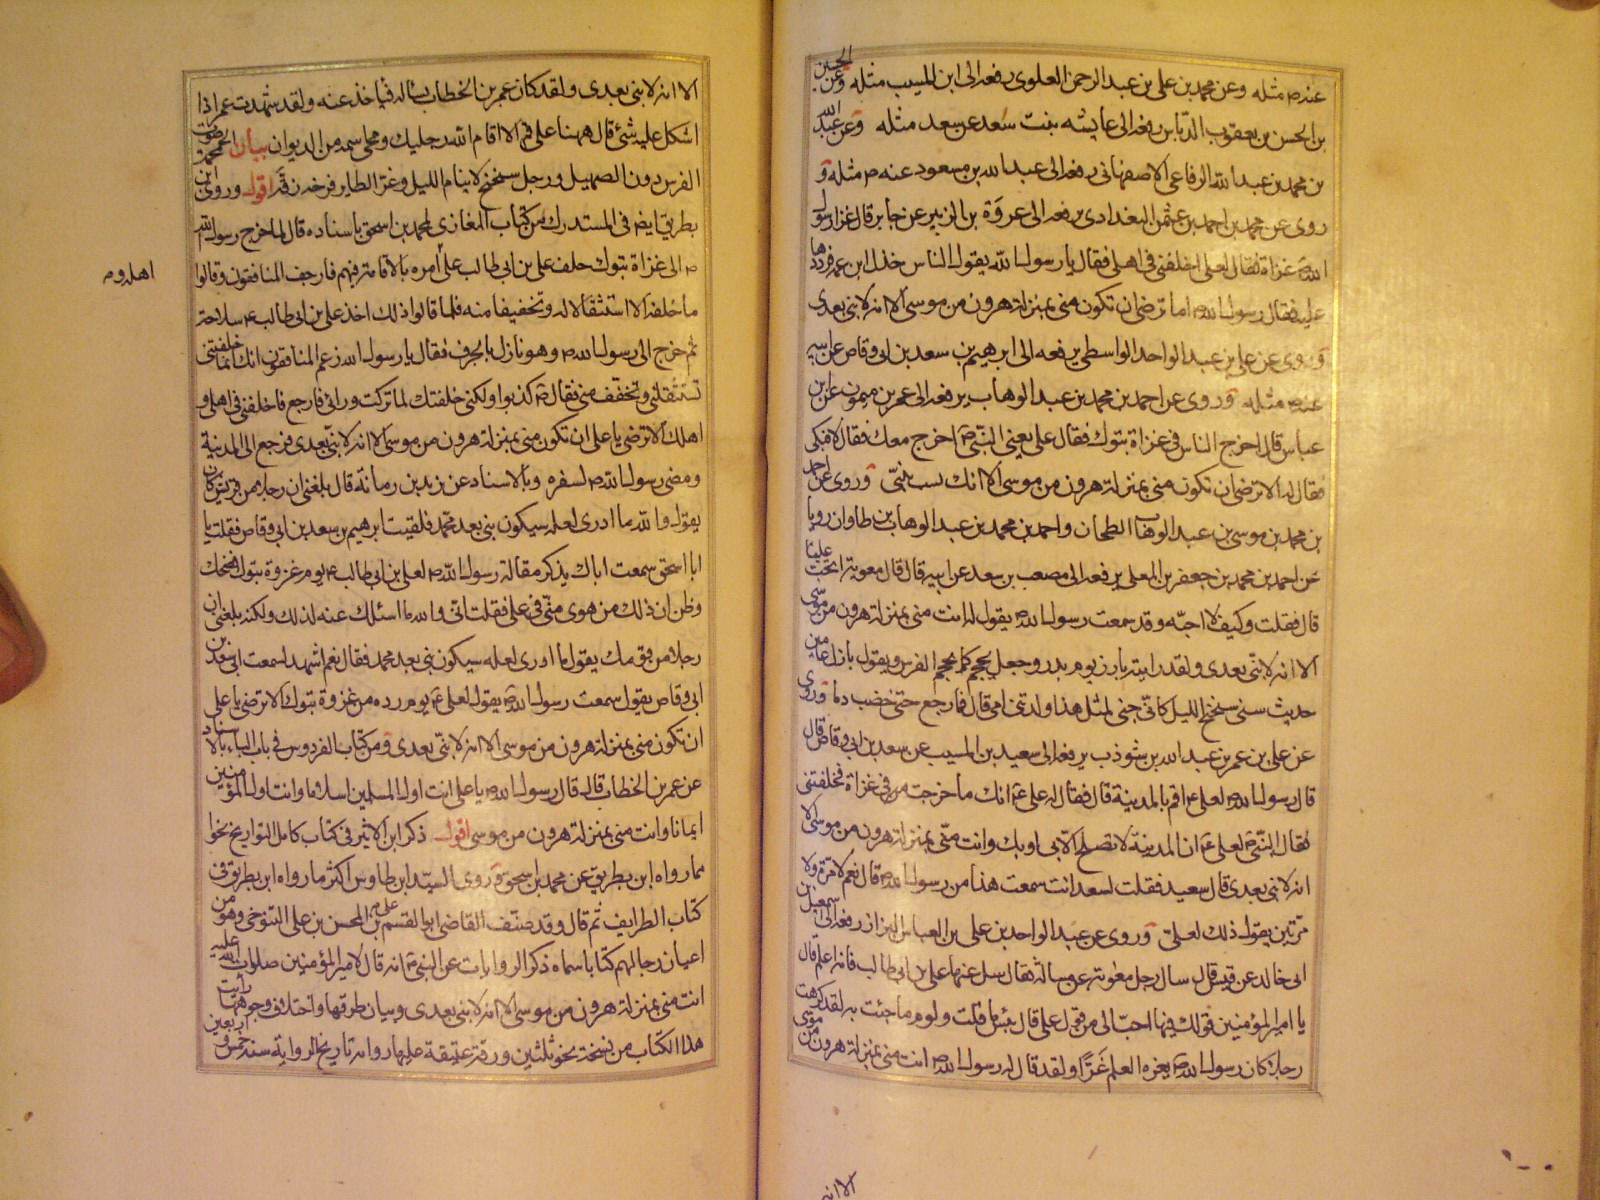 عنه ص مثله وعن محمد بن علي بن عبد الرحمن العلوي يرفعه الى ابن المسيب مثله وعن الحسين
بن الحسن بن يعقوب الدباس يرفعه الى عايشه بنت سعد عن سعد مثله وعن عبد الله
بن محمد بن عبد الله الرفاعي الاصفهاني يرفعه الى عبد الله بن مسعود عنه ص مثله و
روى عن محمد بن احمد بن عثمن البغدادي يرفعه الى عروة بن الزبير عن جابر قال غزا رسول
الله ص غزاة فقال لعلي اخلفني في اهلي فقال يا رسول الله يقول الناس خذل ابن عمه فردها
عليه فقال رسول الله ص اما ترضى ان تكون مني بمنزلة هرون من موسى الا انه لا نبي بعدي
وروى عن علي بن عبد الواحد الواسطي يرفعه الى ابرهيم بن سعد بن ابي وقاص عن ابيه
عنه ص مثله وروى عن احمد بن محمد بن عبد الوهاب يرفعه الى عمر بن ميمون عن ابن
عباس قال اخرج الناس في غزاة تبوك فقال علي يعني النبي ص اخرج معك فقال لا فبكى
فقال له الا ترضى ان تكون مني بمنزلة هرون من موسى الا انك لست بنبي وروى عن احمد
بن محمد بن موسى بن عبد الوهاب الطحان واحمد بن محمد بن عبد الوهاب بن طاوان رويا
عن احمد بن محمد بن جعفر بن المعلى يرفعه الى مصعب بن سعد عن ابيه قال قال معوية اتحب عليا
قال فقلت وكيف لا احبه وقد سمعت رسول الله ص يقول له انت مني بمنزلة هرون من موسى
الا انه لا نبي بعدي ولقد رايته بارز يوم بدر وجعل يحمحم كما يحمحم الفرس ويقول بازل عامين
حديث سني سنحنح الليل كاني جني لمثل هذا ولدتني امي قال فما رجع حتى خضب دما وروى
عن علي بن عمر بن عبد الله بن شوذب يرفعه الى سعيد بن المسيب عن سعد بن ابي وقاص قال
قال رسول الله ص لعلي ع اقم بالمدينة قال فقال له علي ع انك ما خرجت من في غزاة فخلفتني
فقال النبي ص لعلي ع ان المدينة لا تصلح الا بي او بك وانت مني بمنزلة هرون من موسى الا
انه لا نبي بعدي قال سعيد فقلت لسعد انت سمعت هذا من رسول الله ص قال نعم لا مرة ولا
مرتين يقول ذلك لعلي وروى عن عبد الواحد بن علي بن العباس البزاز رفعه الى اسمعيل بن
ابي خالد عن قيس قال سال رجل معوية عن مسالة فقال سل عنها علي بن ابي طالب فانه اعلم قال
يا امير المؤمنين قولك فيها احب الي من قول علي قال بئس ما قلت ولوم ما جئت به لقد كرهت
رجلا كان رسول الله ص يغره العلم غرا ولقد قال له رسول الله ص انت مني بمنزلة هرون من موسى
الا انه
الا انه لا نبي بعدي ولقد كان عمر بن الخطاب يساله فياخذ عنه ولقد شهدت عمر اذا
اشكل عليه شئ قال ههنا علي قم الا اقام الله رجليك ومحى اسمه من الديوان بيان الحمحمة صوت
الفرس دون الصهيل ورجل سنحنح لا ينام الليل وغر الطاير فرخه زقه اقول وروى ابن
بطريق ايضا في المستدرك من كتاب المغازي لمحمد بن اسحق باسناده قال لما خرج رسول الله
ص الى غزاة تبوك خلف علي بن ابي طالب على امره بالاقامة فيهم فارجف المنافقون وقالوا
اهله وم
ما خلفه الا استثقالا له وتخفيفا منه فلما قالوا ذلك اخذ علي بن ابي طالب ع سلاحه
ثم خرج الى رسول الله ص وهو نازل بالجرف فقال يا رسول الله زعم المنافقون انك انما خلفتني
تستثقلني وتخفف مني فقال ص كذبوا ولكني خلفتك لما تركت ورائي فارجع فاخلفني في اهلي و
اهلك الا ترضى يا علي ان تكون مني بمنزلة هرون من موسى الا انه لا نبي بعدي فرجع الى المدينة
ومضى رسول الله ص لسفره وبالاسناد عن يزيد بن رمانة قال بلغني ان رجلا من قريش كان
يقول والله ما ادري لعله سيكون نبي بعد محمد فلقيت ابرهيم بن سعد بن ابي وقاص فقلت يا
ابا اسحق سمعت اباك يذكر مقالة رسول الله ص لعلي بن ابي طالب ع يوم غزوة تبوك فضحك
وظن ان ذلك من هوى مني في علي فقلت اني والله ما اسئلك عنه لذلك ولكنه بلغني ان
رجلا من قومك يقول ما ادري لعله سيكون نبي بعد محمد فقال نعم اشهد لسمعت ابي سعد بن
ابي وقاص يقول سمعت رسول الله ص يقول لعلي ع يوم رده من غزوة تبوك الا ترضى يا علي
ان تكون مني بمنزلة هرون من موسى الا انه لا نبي بعدي ومن كتاب الفردوس في باب الياء بالاسناد
عن عمر بن الخطاب قال قال رسول الله ص يا علي انت اول المسلمين اسلاما وانت اول المؤمنين
ايمانا وانت مني بمنزلة هرون من موسى اقول ذكر ابن الاثير في كتاب كامل التواريخ نحوا
مما رواه ابن بطريق عن محمد بن اسحق وروى السيد ابن طاوس اكثر ما رواه ابن بطريق في
كتاب الطرايف ثم قال وقد صنف القاضي ابو القسم علي بن المحسن بن علي التنوخي وهو من
اعيان رجالهم كتابا سماه ذكر الروايات عن النبي ص انه قال لامير المؤمنين صلوات الله عليه
انت مني بمنزلة هرون من موسى الا انه لا نبي بعدي وبيان طرقها واختلاف وجوهها رأيت
هذا الكتاب من نسخة نحو ثلثين ورقة عتيقة عليها رواية تاريخ الرواية سنة خمس واربعين